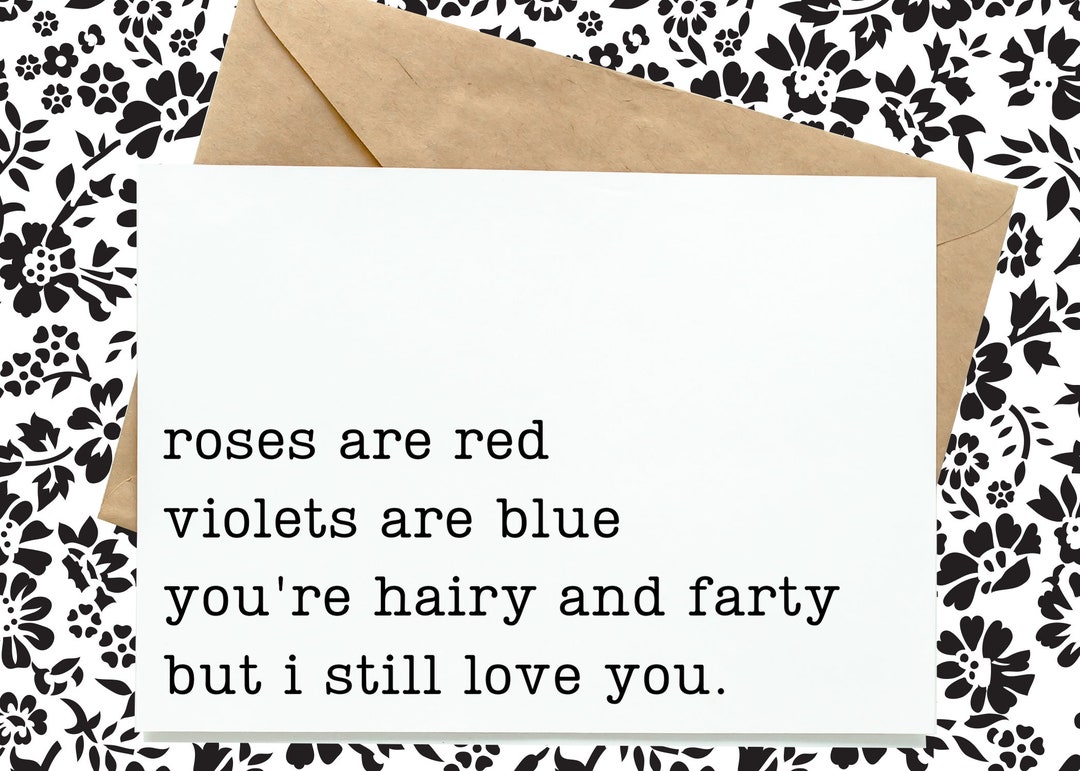 roses are red
violets are blue
you're hairy and farty
but i still love you.